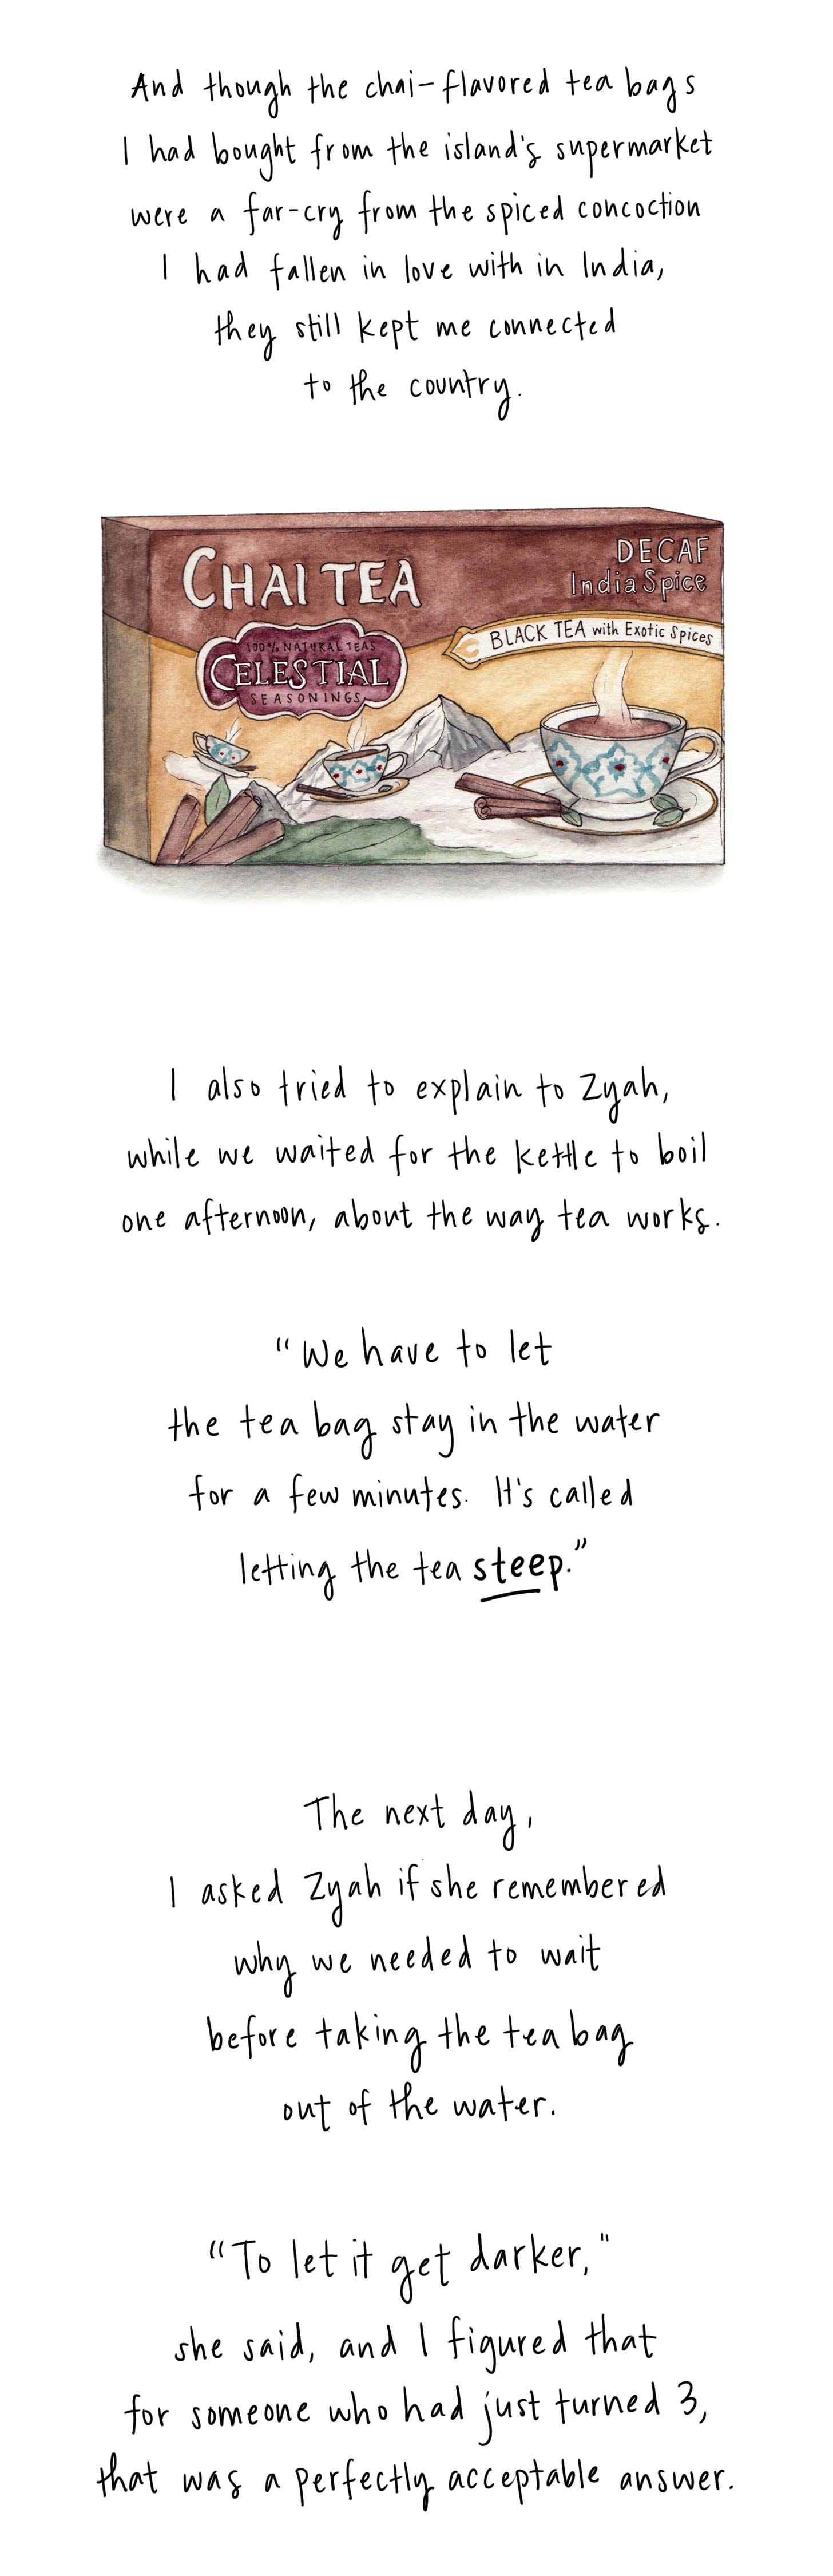 And though the chai-flavored tea bags
I had bought from the island's supermarket
were a far-cry from the spiced concoction
I had fallen in love with in India,
they still kept me connected
to the country.
CHAI TEA
DECAF
India Spice
BLACK TEA with Exotic Spices
100% NATURAL TEAS
CELESTIAL
SEASONINGS
I also tried to explain to Zyah,
while we waited for the kettle to boil
one afternoon, about the way tea works.
"We have to let
the tea bag stay in the water
for a few minutes. It's called
letting the tea steep."
The next day,
I asked Zyah if she remembered
why we needed to wait
before taking the tea bag
out of the water.
"To let it get darker,"
she said, and I figured that
for someone who had just turned 3,
that was a perfectly acceptable answer.